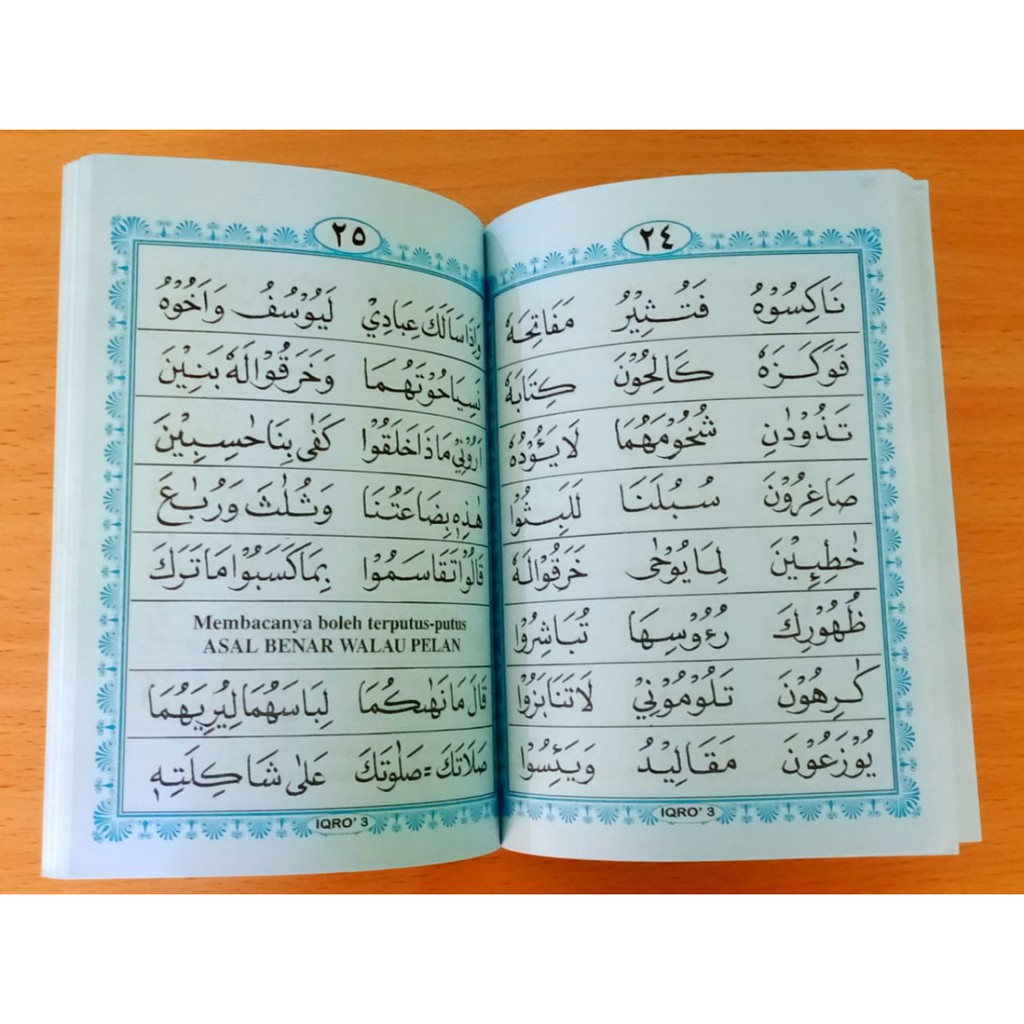 ٢٤
نَاكِسُوْهُ فَتُثِيْرُ مَفَاتِحَهٗ
فَوَكَزَهٗ كَالِحُوْنَ كِتَابَهٗ
تَذُوْدٰنِ شُحُوْمَهُمَا لَايَـُٔوْدُهٗ
صَاغِرُوْنَ سُبُلَنَا لَلَبِثُوْا
خٰطِـِٕيْنَ لِمَا يُوْحٰى خَرَقُوْالَهٗ
ظُهُوْرِكَ رُءُوْسِهَا تُبَاشِرُوْا
كٰرِهُوْنَ تَلُوْمُوْنِيْ لَاتَنَابَزُوْا
يُوْزَعُوْنَ مَقَالِيْدُ وَيَئِسُوْا
IQRO' 3
٢٥
وَاِذَا سَاَلَكَ عِبَادِيْ لَيُوْسُفُ وَاَخُوْهُ
نَسِيَا حُوْتَهُمَا وَخَرَقُوْالَهٗ بَنِيْنَ
اَرُوْنِيْ مَاذَا خَلَقُوْا كَفٰى بِنَا حٰسِبِيْنَ
هٰذِهٖ بِضَاعَتُنَا وَثُلٰثَ وَرُبٰعَ
قَالُوْا تَقَاسَمُوْا بِمَا كَسَبُوْا مَا تَرَكَ
Membacanya boleh terputus-putus
ASAL BENAR WALAU PELAN
قَالَ مَا نَهٰىكُمَا لِبَاسَهُمَا لِيُرِيَهُمَا
صَلَاتَكَ = صَلٰوتَكَ عَلٰى شَاكِلَتِهٖ
IQRO' 3